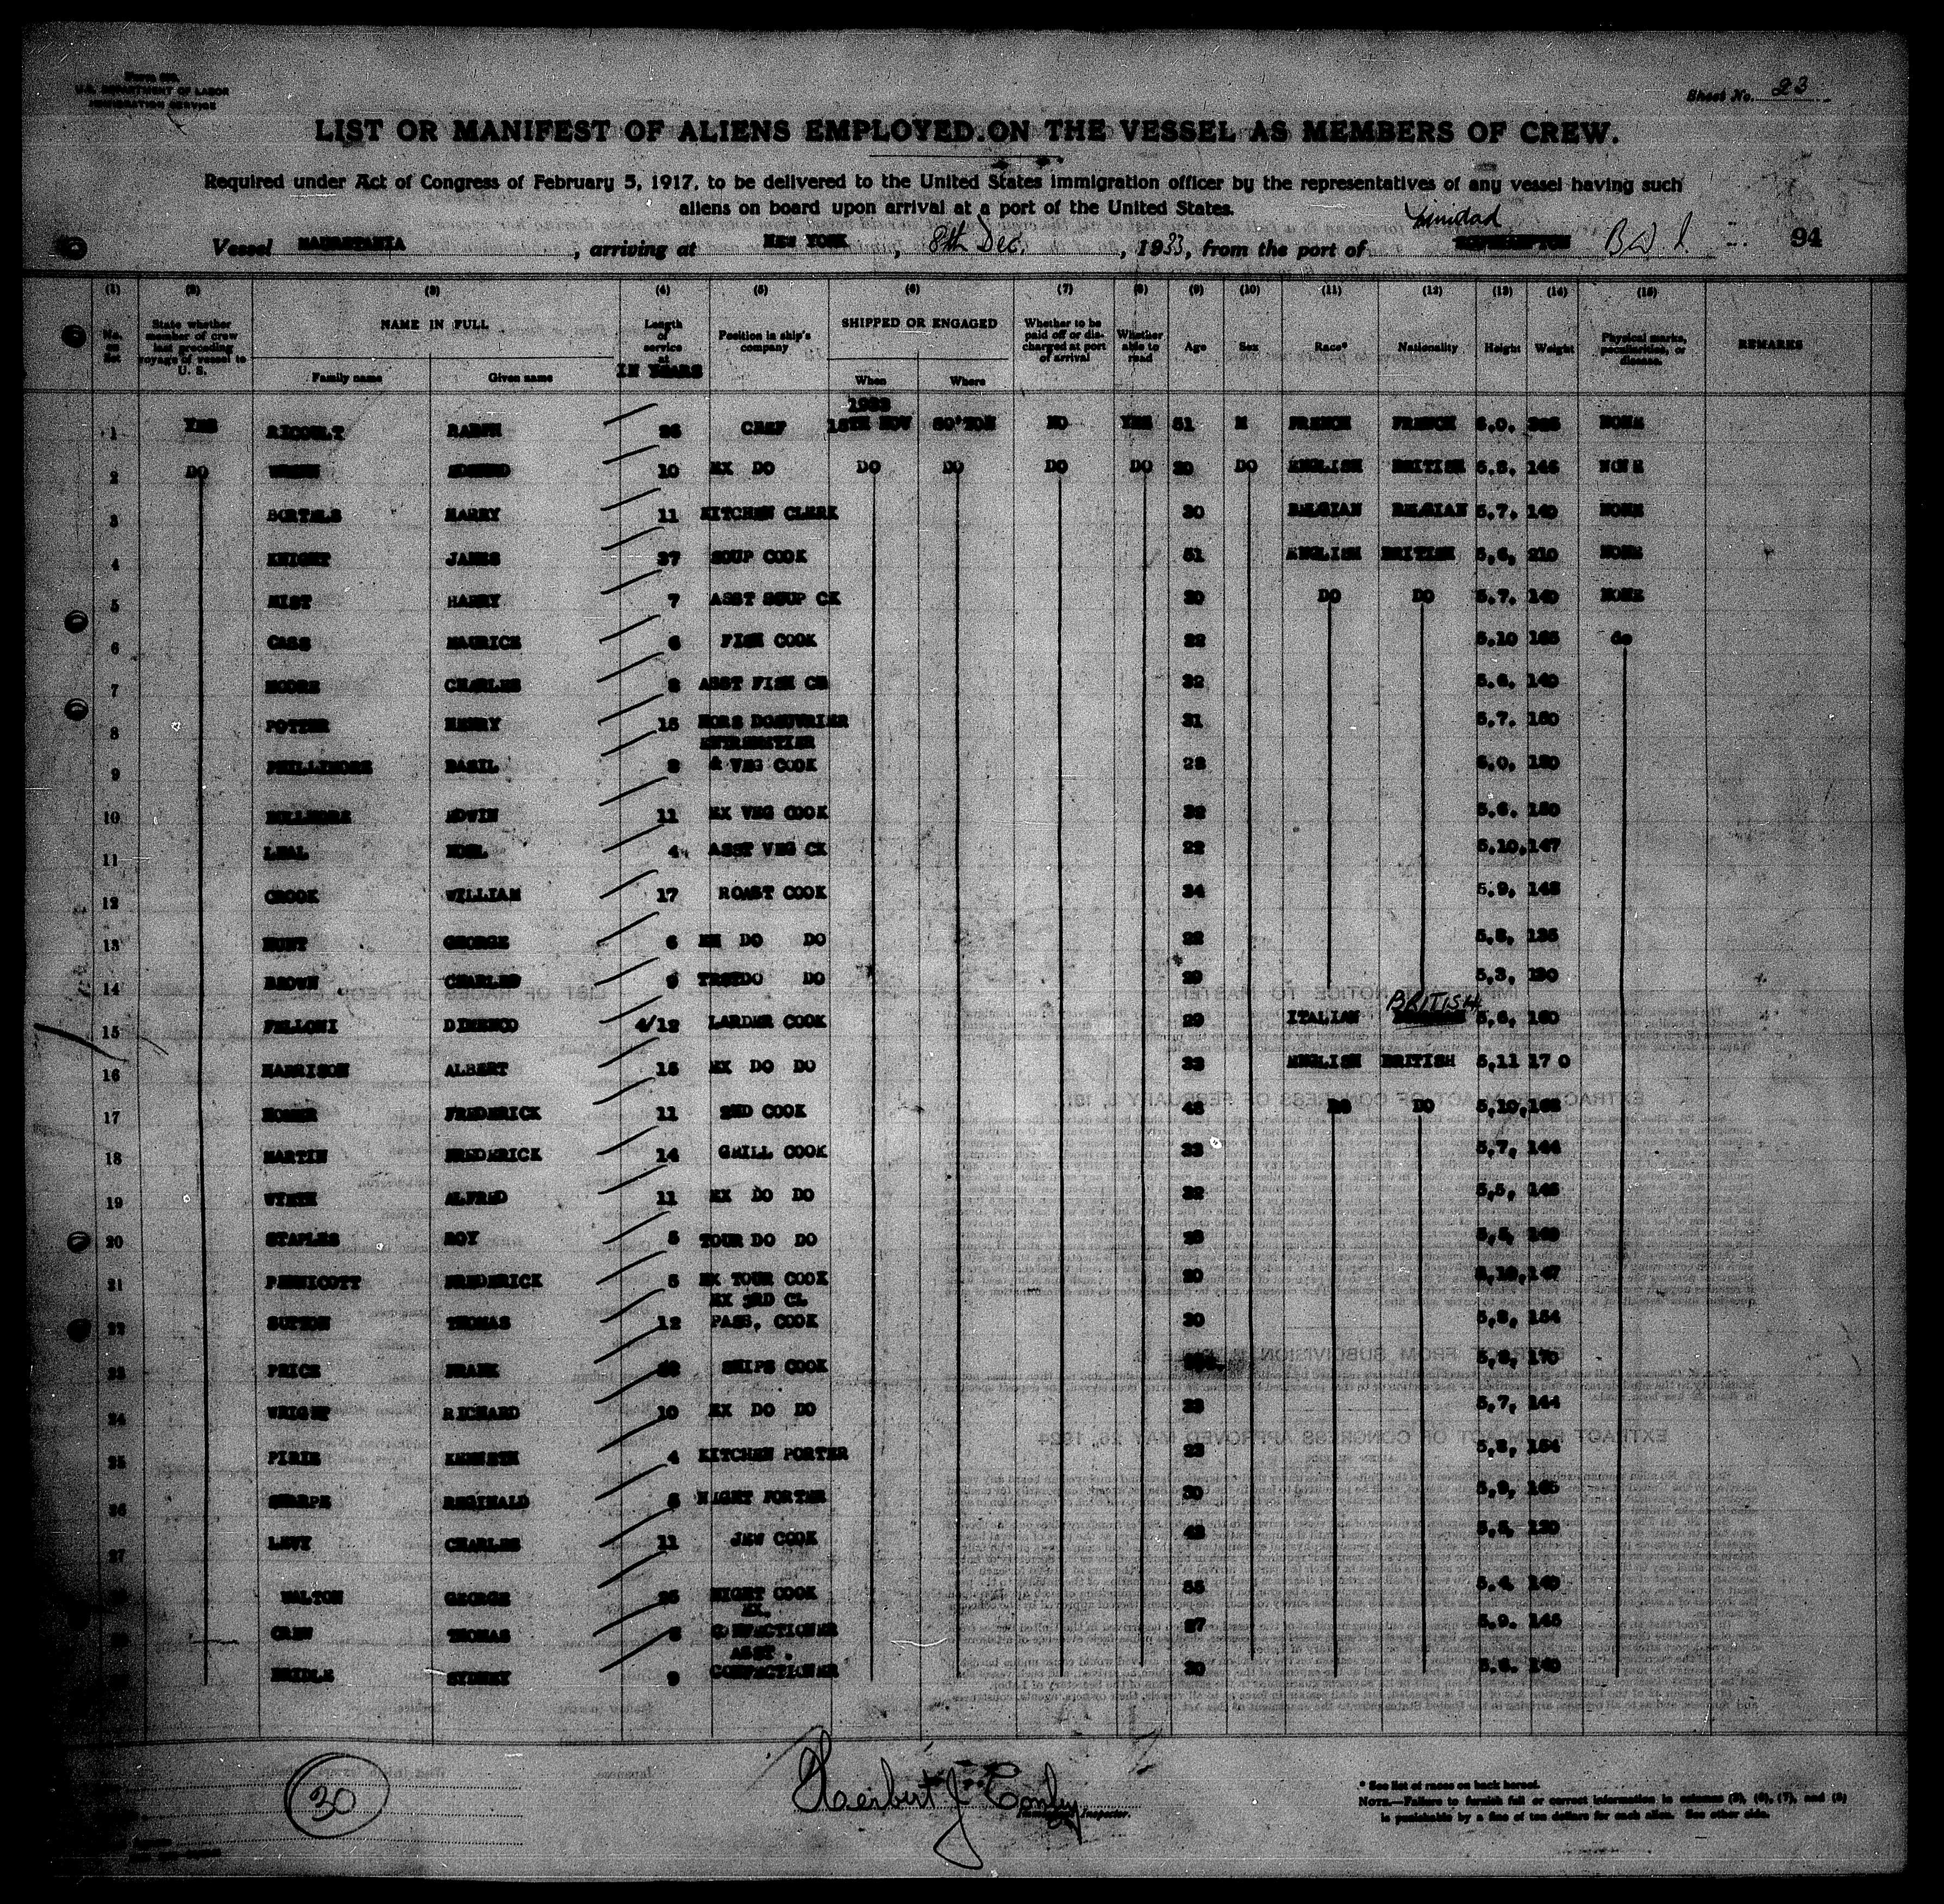 U.S. DEPARTMENT OF LABOR
IMMIGRATION SERVICE
Sheet No. 23
LIST OR MANIFEST OF ALIENS EMPLOYED ON THE VESSEL AS MEMBERS OF CREW.
Required under Act of Congress of February 5, 1917, to be delivered to the United States immigration officer by the representatives of any vessel having such
aliens on board upon arrival at a port of the United States.
Trinidad
Vessel MAURETANIA, arriving at NEW YORK, 8th Dec., 1933, from the port of SOUTHAMPTON B W I. 94
(1) (2) (3) (4) (5) (6) (7) (8) (9) (10) (11) (12) (13) (14) (15)
No. on list State whether member of crew last preceding voyage of vessel to U. S. NAME IN FULL Family name Given name Length of service at IN YEARS Position in ship's company SHIPPED OR ENGAGED When Where Whether to be paid off or discharged at port of arrival Whether able to read Age Sex Race* Nationality Height Weight Physical marks, peculiarities, or disease. REMARKS
1933
1 YES RALPH 26 CHEF 15TH NOV SO'TON NO YES 51 M FRENCH FRENCH 6.0. NONE
2 DO 10 EX DO DO DO DO DO 30 DO ENGLISH BRITISH 5.8. 146 NONE
3 HARRY 11 KITCHEN CLERK 30 BELGIAN BELGIAN 5.7. 140 NONE
4 KNIGHT JAMES 37 SOUP COOK 51 ENGLISH BRITISH 5,6, 210 NONE
5 MIST HARRY 7 ASST SOUP CK 20 DO DO 5.7. 140 NONE
6 CASS MAURICE 6 FISH COOK 22 5.10 165 do
7 MOORE CHARLES 8 ASST FISH CK 32 5.6. 140
8 POTTER HENRY 15 HORS DOEUVRIER 31 5.7. 150
ENTREMETIER
9 PHILLIMORE BASIL 8 & VEG COOK 28 6.0. 150
10 EDWIN 11 EX VEG COOK 32 5.6. 150
11 LEAL NOEL 4 ASST VEG CK 22 5,10,147
12 CROOK WILLIAM 17 ROAST COOK 34 5.9. 148
13 HUNT GEORGE 6 EX DO DO 22 5,8, 135
14 BROWN CHARLES 9 DO 29 5,3, 130
BRITISH
15 FELLONI 4/12 LARDER COOK 29 ITALIAN 5,6, 150
16 HARRISON ALBERT 15 EX DO DO 33 ENGLISH BRITISH 5,11 170
17 HOMER FREDERICK 11 2ND COOK 48 DO DO 5,10,168
18 MARTIN FREDERICK 14 GRILL COOK 33 5,7, 144
19 WYETH ALFRED 11 EX DO DO 32 5,5, 146
20 STAPLES ROY 5 TOUR DO DO 28 5,5, 140
21 PENNICOTT FREDERICK 5 EX TOUR COOK 20 5,10,147
EX 3RD CL
22 SUTTON THOMAS 12 PASS, COOK 30 5,8, 154
23 PRICE FRANK SHIPS COOK 5,8, 170
24 WRIGHT RICHARD 10 EX DO DO 23 5,7, 144
25 PIRIE KENNETH 4 KITCHEN PORTER 23 5,8, 154
26 REGINALD NIGHT PORTER 30 5,9, 165
27 LEVY CHARLES 11 JEW COOK 43 5,5, 130
WALTON GEORGE 25 NIGHT COOK 55 5.4. 140
EX.
CREW THOMAS CONFECTIONER 27 5.9. 145
ASST.
BRIDLE SYDNEY 9 CONFECTIONER 30 5.6. 140
30
Herbert J. Conley
Immigrant Inspector.
* See list of races on back hereof.
NOTE.—Failure to furnish full or correct information in columns (3), (6), (7), and (8)
is punishable by a fine of ten dollars for each alien. See other side.